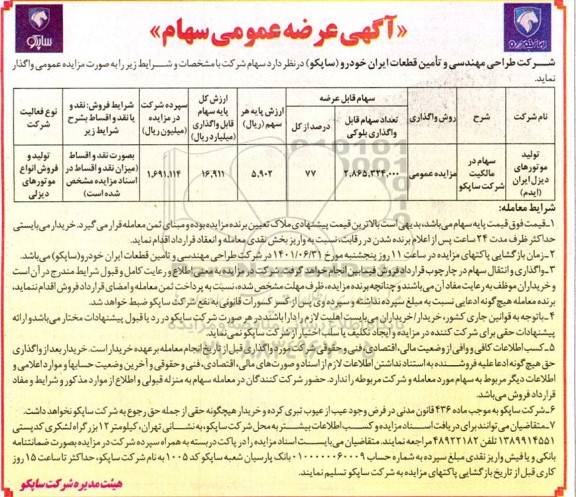 «آگهی عرضه عمومی سهام»
ایران خودرو
ساپکو
شرکت طراحی مهندسی و تأمین قطعات ایران خودرو (ساپکو) در نظر دارد سهام شرکت با مشخصات و شرایط زیر را به صورت مزایده عمومی واگذار
نماید.
نام شرکت
شرح
روش واگذاری
سهام قابل عرضه
تعداد سهام قابل واگذاری بلوکی
درصد از کل
ارزش پایه هر سهم (ریال)
ارزش کل پایه سهام قابل واگذاری (میلیارد ریال)
سپرده شرکت در مزایده (میلیون ریال)
شرایط فروش: نقد و یا نقد و اقساط بشرح شرایط زیر
نوع فعالیت شرکت
تولید موتورهای دیزل ایران (ایدم)
سهام در مالکیت شرکت ساپکو
مزایده عمومی
۲،۸۶۵،۳۲۴،۰۰۰
۷۷
۵،۹۰۲
۱۶،۹۱۱
۱،۶۹۱،۱۱۴
بصورت نقد و اقساط (میزان نقد و اقساط در اسناد مزایده مشخص شده است)
تولید و فروش انواع موتورهای دیزلی
شرایط معامله:
۱-قیمت فوق قیمت پایه سهام می‌باشد، بدیهی است بالاترین قیمت پیشنهادی ملاک تعیین برنده مزایده بوده و مبنای ثمن معامله قرار می‌گیرد. خریدار می‌بایستی
حداکثر ظرف مدت ۲۴ ساعت پس از اعلام برنده شدن در رقابت، نسبت به واریز بخش نقدی معامله و انعقاد قرارداد اقدام نماید.
۲-زمان بازگشایی پاکتهای مزایده در ساعت ۱۱ روز پنجشنبه مورخ ۱۴۰۱/۰۶/۳۱ در شرکت طراحی مهندسی و تأمین قطعات ایران خودرو (ساپکو) می‌باشد.
۳-واگذاری و انتقال سهام در چارچوب قرارداد فروش فیمابین انجام خواهد گرفت. شرکت در مزایده به معنی اطلاع و رعایت کامل و قبول شرایط مندرج در آن است
و خریداران موظف به رعایت مفاد آن می‌باشند و چنانچه برنده مزایده، ظرف مهلت مشخص شده، نسبت به پرداخت ثمن معامله و امضای قرارداد فروش اقدام ننماید،
برنده معامله هیچ گونه ادعایی نسبت به مبلغ سپرده نداشته و سپرده وی پس از کسر کسورات قانونی به نفع شرکت ساپکو ضبط خواهد شد.
۴-با توجه به قوانین جاری کشور، خریدار/خریداران می‌بایست اهلیت لازم را دارا باشند در هر صورت شرکت ساپکو در رد یا قبول پیشنهادات مختار می‌باشد و ارائه
پیشنهادات حقی برای شرکت کننده در مزایده و ایجاد تکلیف یا سلب اختیار از شرکت ساپکو نمی نماید.
۵-کسب اطلاعات کافی و وافی از وضعیت مالی، اقتصادی، فنی و حقوقی شرکت مورد واگذاری قبل از تاریخ انجام معامله بر عهده خریدار است. خریدار بعد از واگذاری
حق هیچ گونه ادعا علیه فروشنده به استناد نداشتن اطلاعات لازم از اسناد و صورت های مالی، اقتصادی، فنی و حقوقی و آخرین وضعیت حسابها و موارد اعلامی و
اطلاعات دیگر مربوط به سهام مورد معامله و شرکت مربوطه را ندارد. حضور شرکت کنندگان در معامله سهام به منزله قبولی و اطلاع از موارد مذکور و شرایط و مفاد
قرارداد فروش می‌باشد.
۶-شرکت ساپکو به موجب ماده ۴۳۶ قانون مدنی در فرض وجود عیب از عیوب تبری کرده و خریدار هیچگونه حقی از جمله حق رجوع به شرکت ساپکو نخواهد داشت.
۷-متقاضیان می‌توانند برای دریافت اسناد مزایده و کسب اطلاعات بیشتر به محل شرکت ساپکو، به نشانی تهران، کیلومتر ۱۲ بزرگراه لشکری کدپستی
۱۳۸۹۹۱۴۵۵۱ تلفن ۴۸۹۲۲۱۸۲ مراجعه نمایند. متقاضیان می‌بایست اسناد مزایده را در پاکت دربسته به همراه سپرده شرکت در مزایده بصورت ضمانتنامه
بانکی و یا فیش واریز نقدی مبلغ سپرده به شماره حساب بانک پارسیان شعبه ساپکو کد ۱۰۰۵ به نام شرکت ساپکو، حداکثر تا ساعت ۱۵ روز
کاری قبل از تاریخ بازگشایی پاکتهای مزایده به شرکت ساپکو تسلیم نمایند.
هیئت مدیره شرکت ساپکو